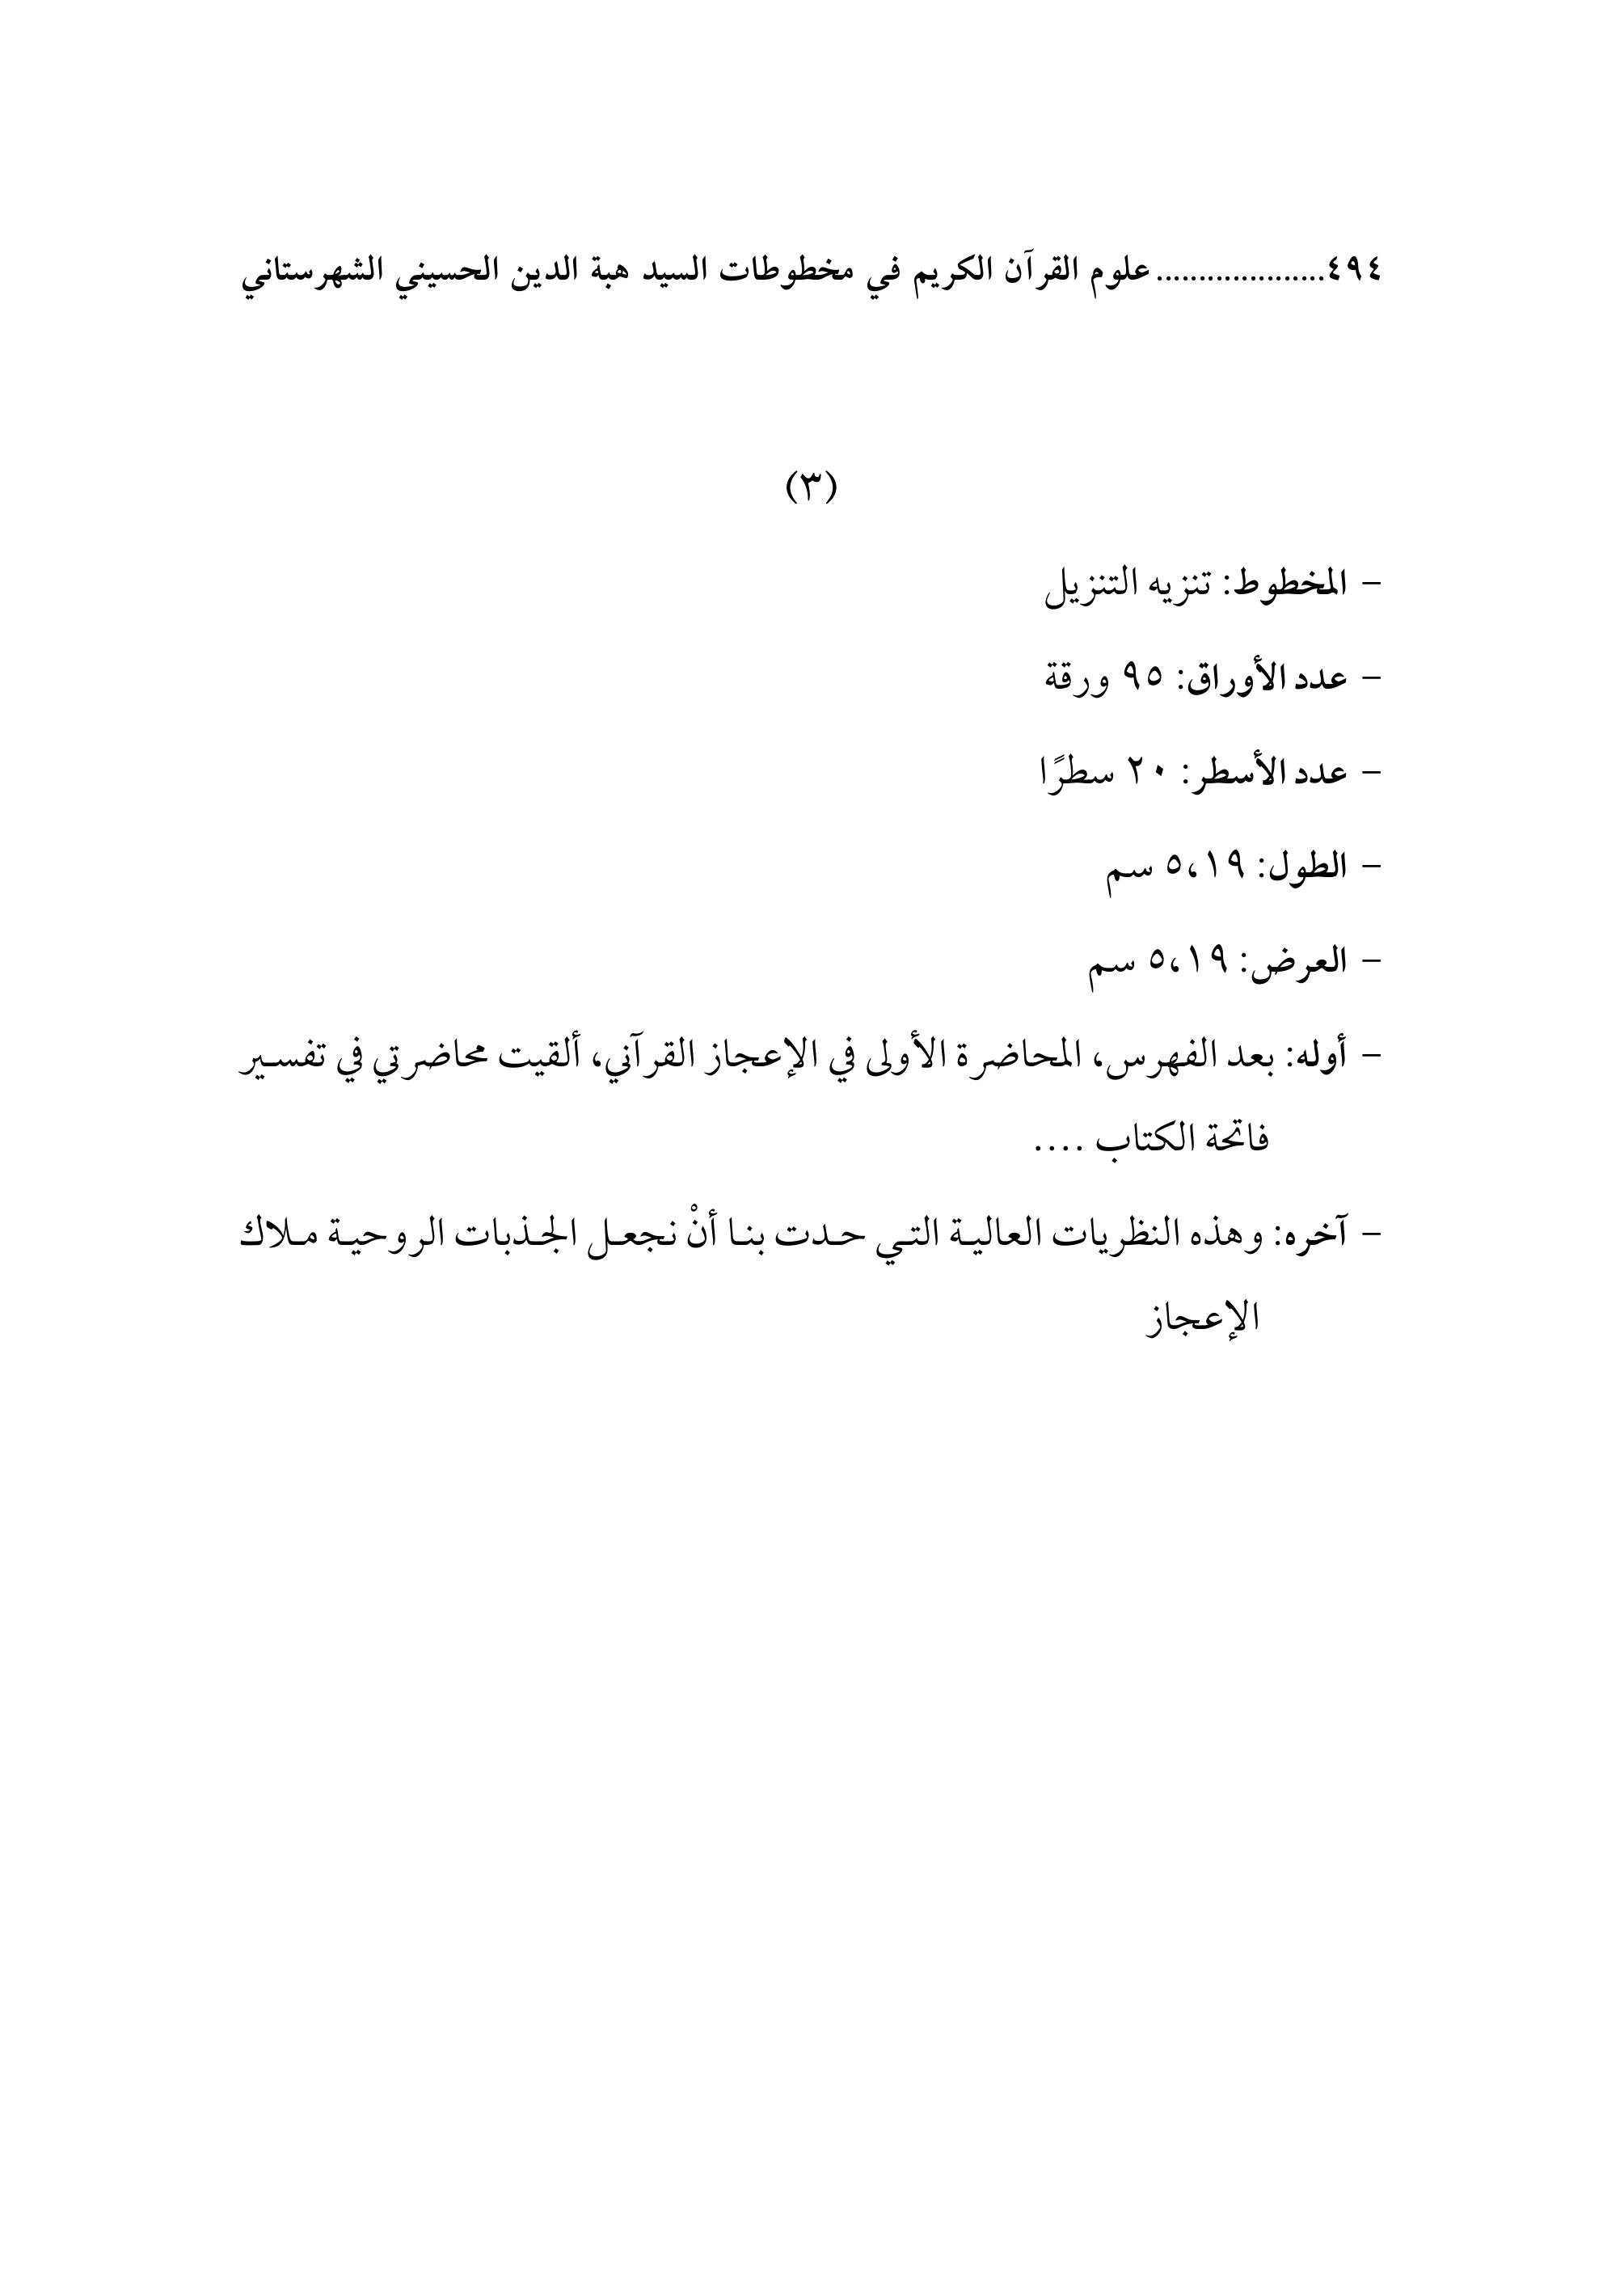 ٤٩٤....................علوم القرآن الكريم في مخطوطات السيد هبة الدين الحسيني الشهرستاني
(٣)
– المخطوط: تنزيه التنزيل
– عدد الأوراق: ٩٥ ورقة
– عدد الأسطر: ٢٠ سطرًا
– الطول: ٥،١٩ سم
– العرض: ٥،١٩ سم
– أوله: بعد الفهرس، المحاضرة الأولى في الإعجاز القرآني، ألقيت محاضرتي في تفسير
فاتحة الكتاب ....
– آخره: وهذه النظريات العالية التي حدت بنا أنْ نجعل الجذبات الروحية ملاك
الإعجاز